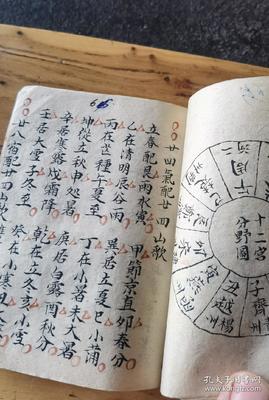 66
廿四氣配廿四山歌
立春配艮雨水寅
甲節京直卯春分
乙在清明辰谷雨
巽居立夏巳小浦
丙在芒種午夏至
丁在小暑未大暑
坤從立秋申處暑
庚居白露酉秋分
辛居寒露戌霜降
乾在立冬亥小雪
壬居大雪子冬至
癸在小寒
八宿配廿四山歌
十二宮
分野圖
子齊
丑越楊州
寅燕
周
孔夫子旧书网